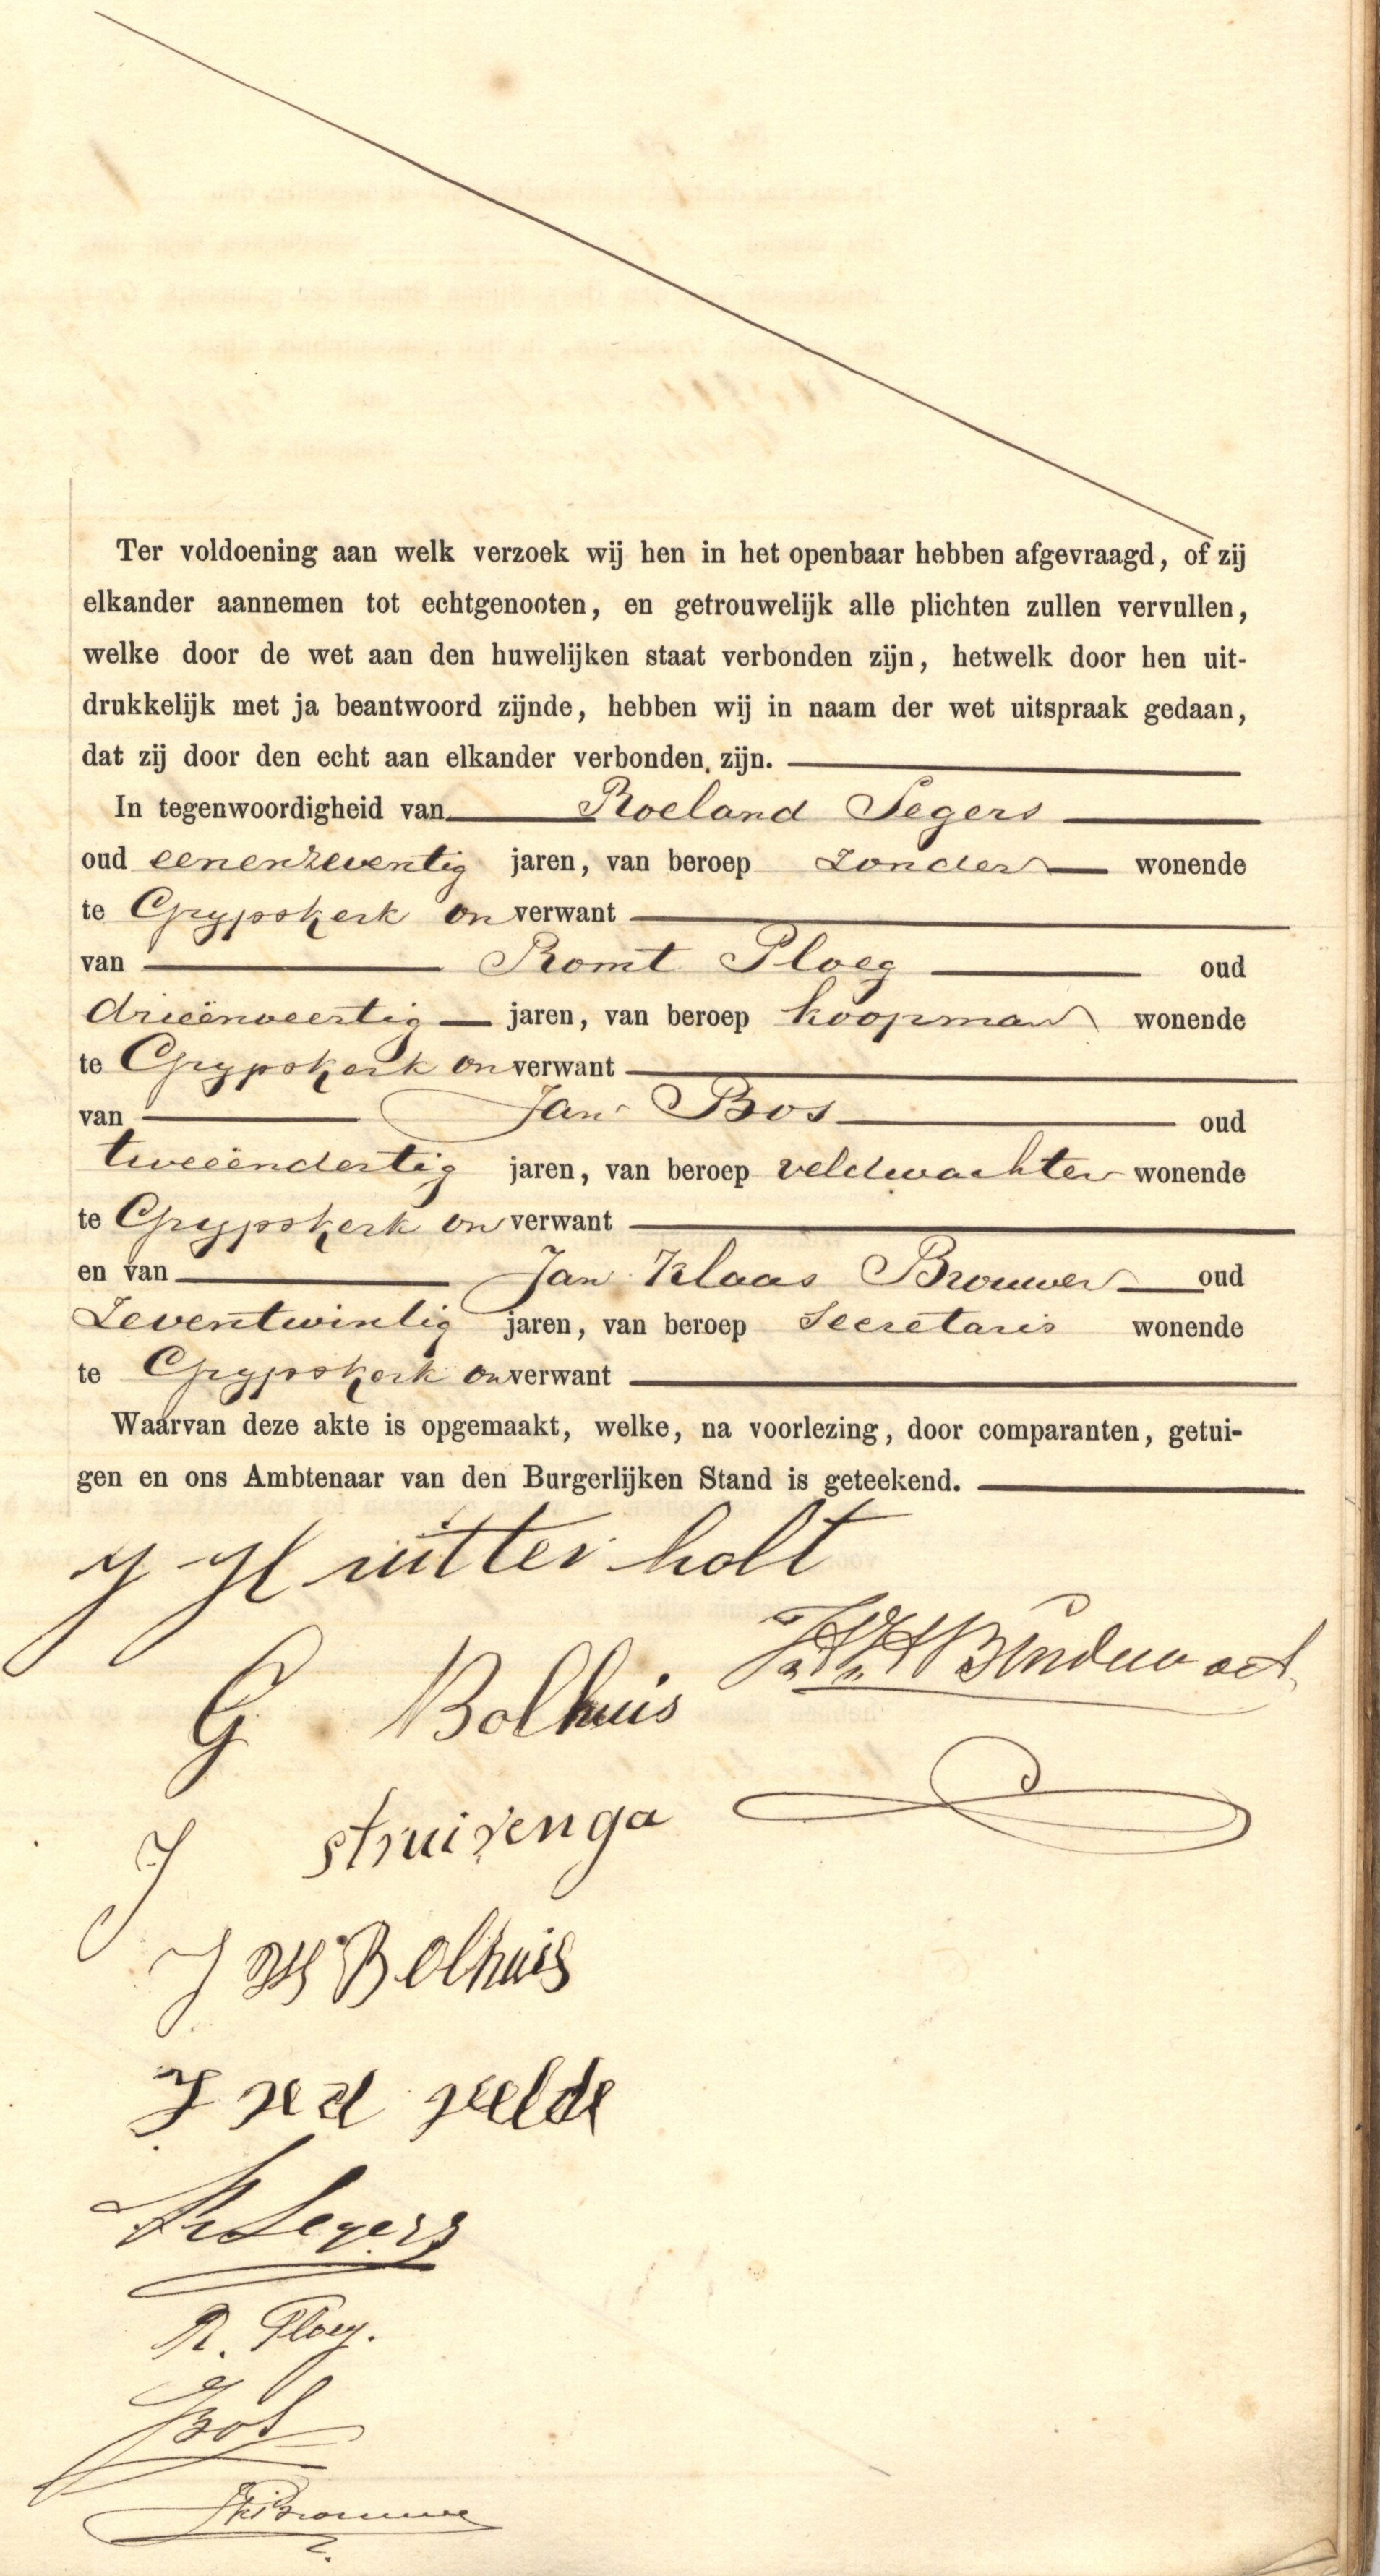 Ter voldoening aan welk verzoek wij hen in het openbaar hebben afgevraagd, of zij
elkander aannemen tot echtgenooten, en getrouwelijk alle plichten zullen vervullen,
welke door de wet aan den huwelijken staat verbonden zijn, hetwelk door hen uit-
drukkelijk met ja beantwoord zijnde, hebben wij in naam der wet uitspraak gedaan,
dat zij door den echt aan elkander verbonden zijn.
In tegenwoordigheid van Roeland Segers
oud eenenzeventig jaren, van beroep zonder wonende
te Grypskerk onverwant
van Romt Ploeg oud
drieënveertig jaren, van beroep koopman wonende
te Grypskerk onverwant
van Jan Bos oud
tweeëndertig jaren, van beroep veldwachter wonende
te Grypskerk onverwant
en van Jan Klaas Brouwer oud
Zeventwintig jaren, van beroep Secretaris wonende
te Grypskerk onverwant
Waarvan deze akte is opgemaakt, welke, na voorlezing, door comparanten, getui-
gen en ons Ambtenaar van den Burgerlijken Stand is geteekend.
J H ritterholt
G Bolhuis
J struivenga
J Bolhuis
J v d velde
R Segers
R. Ploeg.
JBos
JKBrouwer